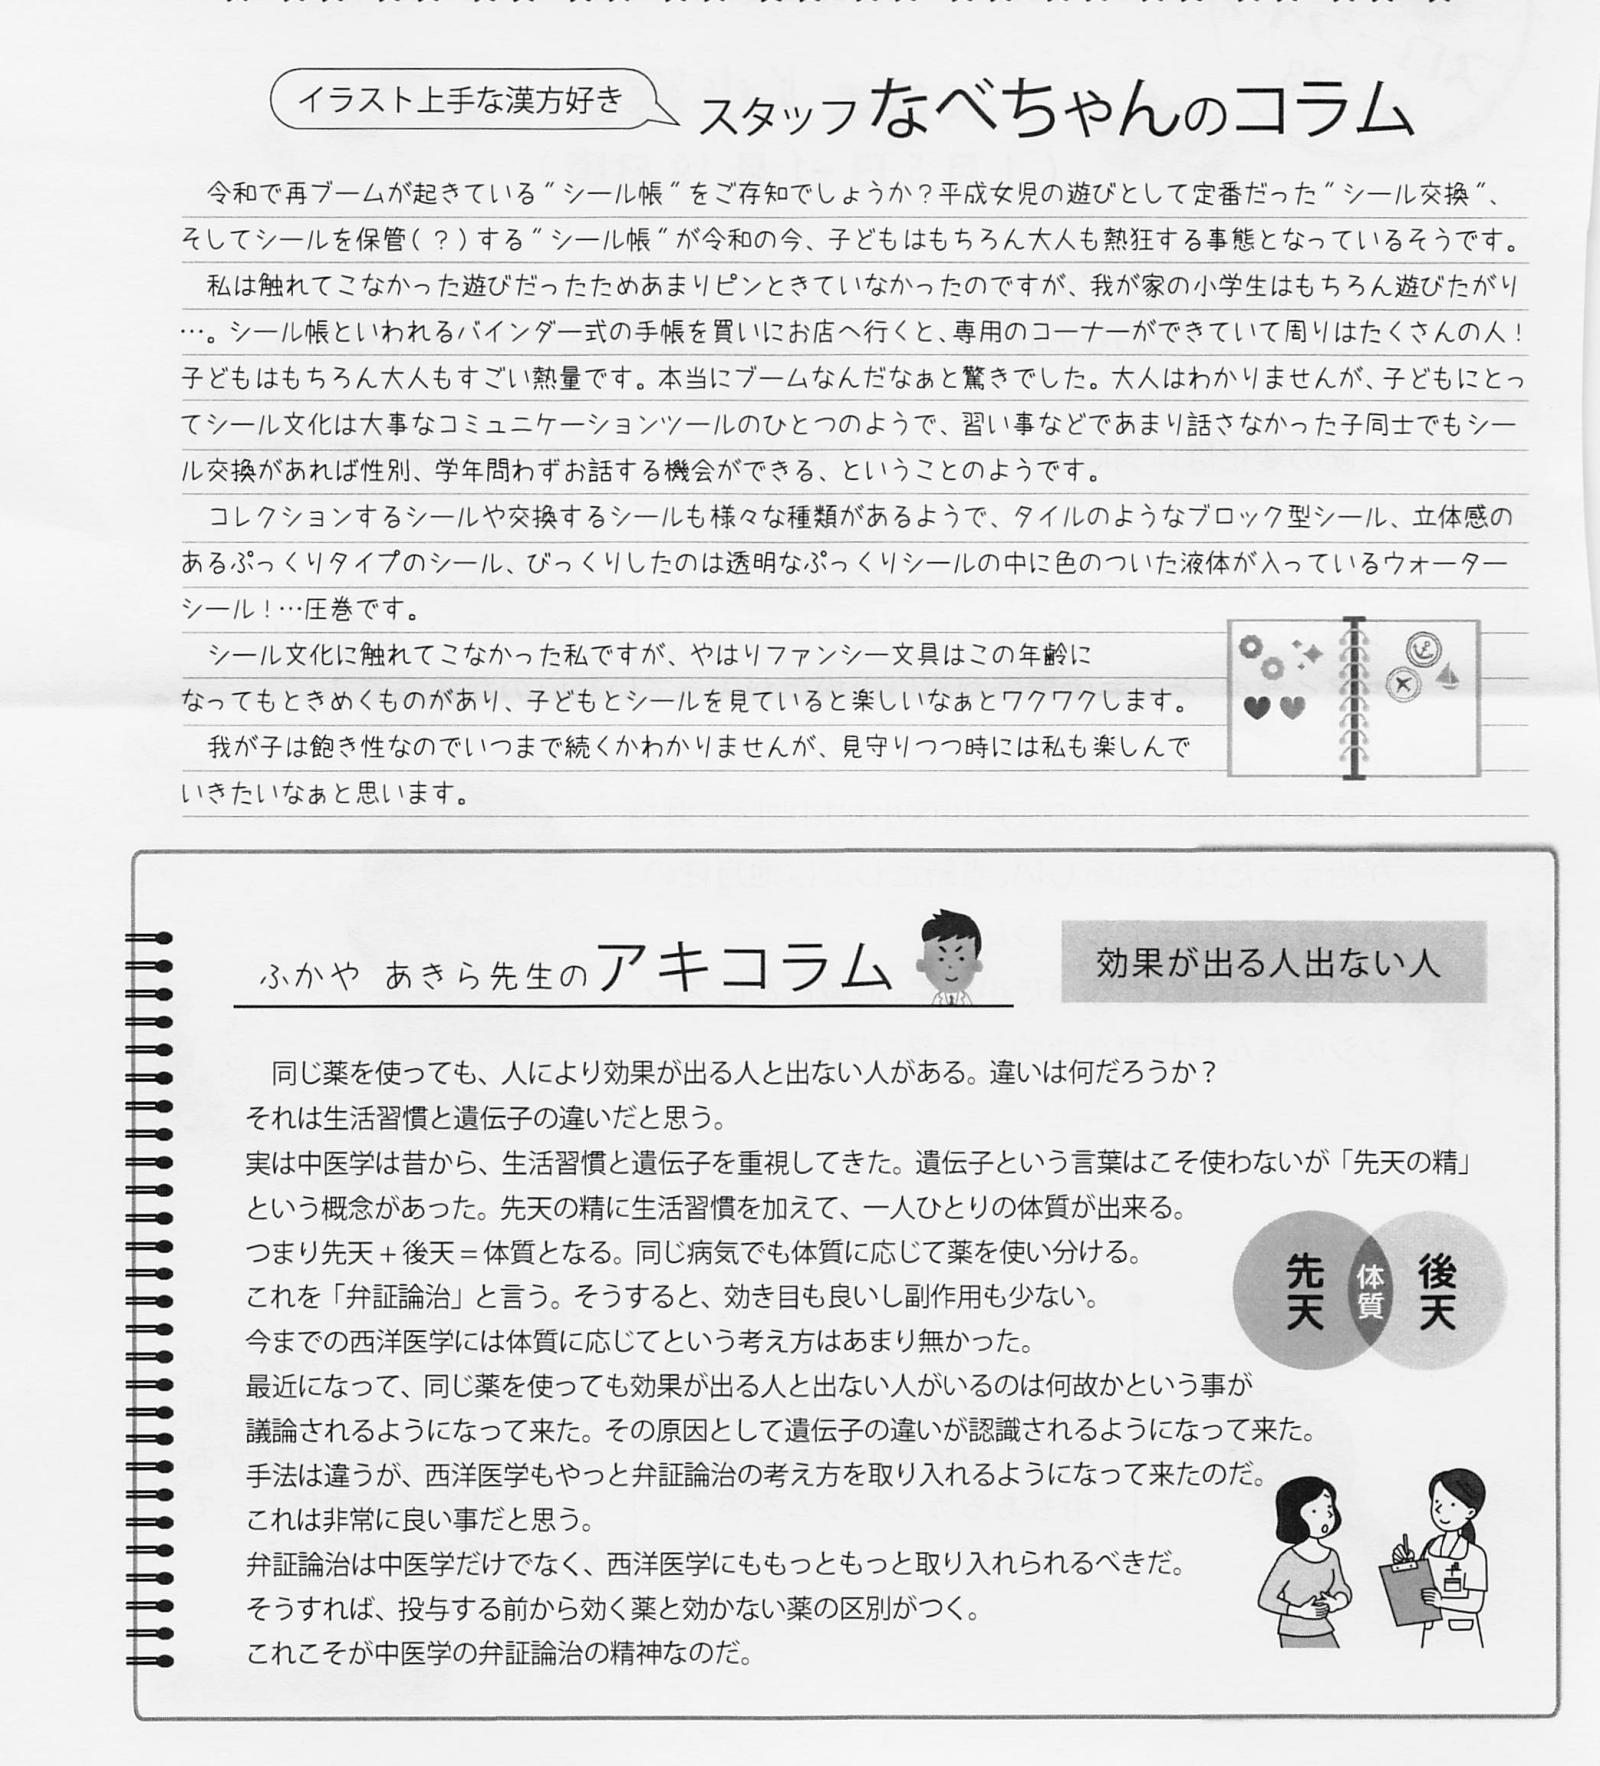 イラスト上手な漢方好き
スタッフなべちゃんのコラム
令和で再ブームが起きている"シール帳"をご存知でしょうか？平成女児の遊びとして定番だった"シール交換"、
そしてシールを保管(？)する"シール帳"が令和の今、子どもはもちろん大人も熱狂する事態となっているそうです。
私は触れてこなかった遊びだったためあまりピンときていなかったのですが、我が家の小学生はもちろん遊びたがり
…。シール帳といわれるバインダー式の手帳を買いにお店へ行くと、専用のコーナーができていて周りはたくさんの人！
子どもはもちろん大人もすごい熱量です。本当にブームなんだなぁと驚きでした。大人はわかりませんが、子どもにとっ
てシール文化は大事なコミュニケーションツールのひとつのようで、習い事などであまり話さなかった子同士でもシー
ル交換があれば性別、学年問わずお話する機会ができる、ということのようです。
コレクションするシールや交換するシールも様々な種類があるようで、タイルのようなブロック型シール、立体感の
あるぷっくりタイプのシール、びっくりしたのは透明なぷっくりシールの中に色のついた液体が入っているウォーター
シール！…圧巻です。
シール文化に触れてこなかった私ですが、やはりファンシー文具はこの年齢に
なってもときめくものがあり、子どもとシールを見ていると楽しいなぁとワクワクします。
我が子は飽き性なのでいつまで続くかわかりませんが、見守りつつ時には私も楽しんで
いきたいなぁと思います。
ふかや あきら先生のアキコラム
効果が出る人出ない人
同じ薬を使っても、人により効果が出る人と出ない人がある。違いは何だろうか？
それは生活習慣と遺伝子の違いだと思う。
実は中医学は昔から、生活習慣と遺伝子を重視してきた。遺伝子という言葉はこそ使わないが「先天の精」
という概念があった。先天の精に生活習慣を加えて、一人ひとりの体質が出来る。
つまり先天＋後天＝体質となる。同じ病気でも体質に応じて薬を使い分ける。
これを「弁証論治」と言う。そうすると、効き目も良いし副作用も少ない。
今までの西洋医学には体質に応じてという考え方はあまり無かった。
最近になって、同じ薬を使っても効果が出る人と出ない人がいるのは何故かという事が
議論されるようになって来た。その原因として遺伝子の違いが認識されるようになって来た。
手法は違うが、西洋医学もやっと弁証論治の考え方を取り入れるようになって来たのだ。
これは非常に良い事だと思う。
弁証論治は中医学だけでなく、西洋医学にももっともっと取り入れられるべきだ。
そうすれば、投与する前から効く薬と効かない薬の区別がつく。
これこそが中医学の弁証論治の精神なのだ。
先天
体質
後天